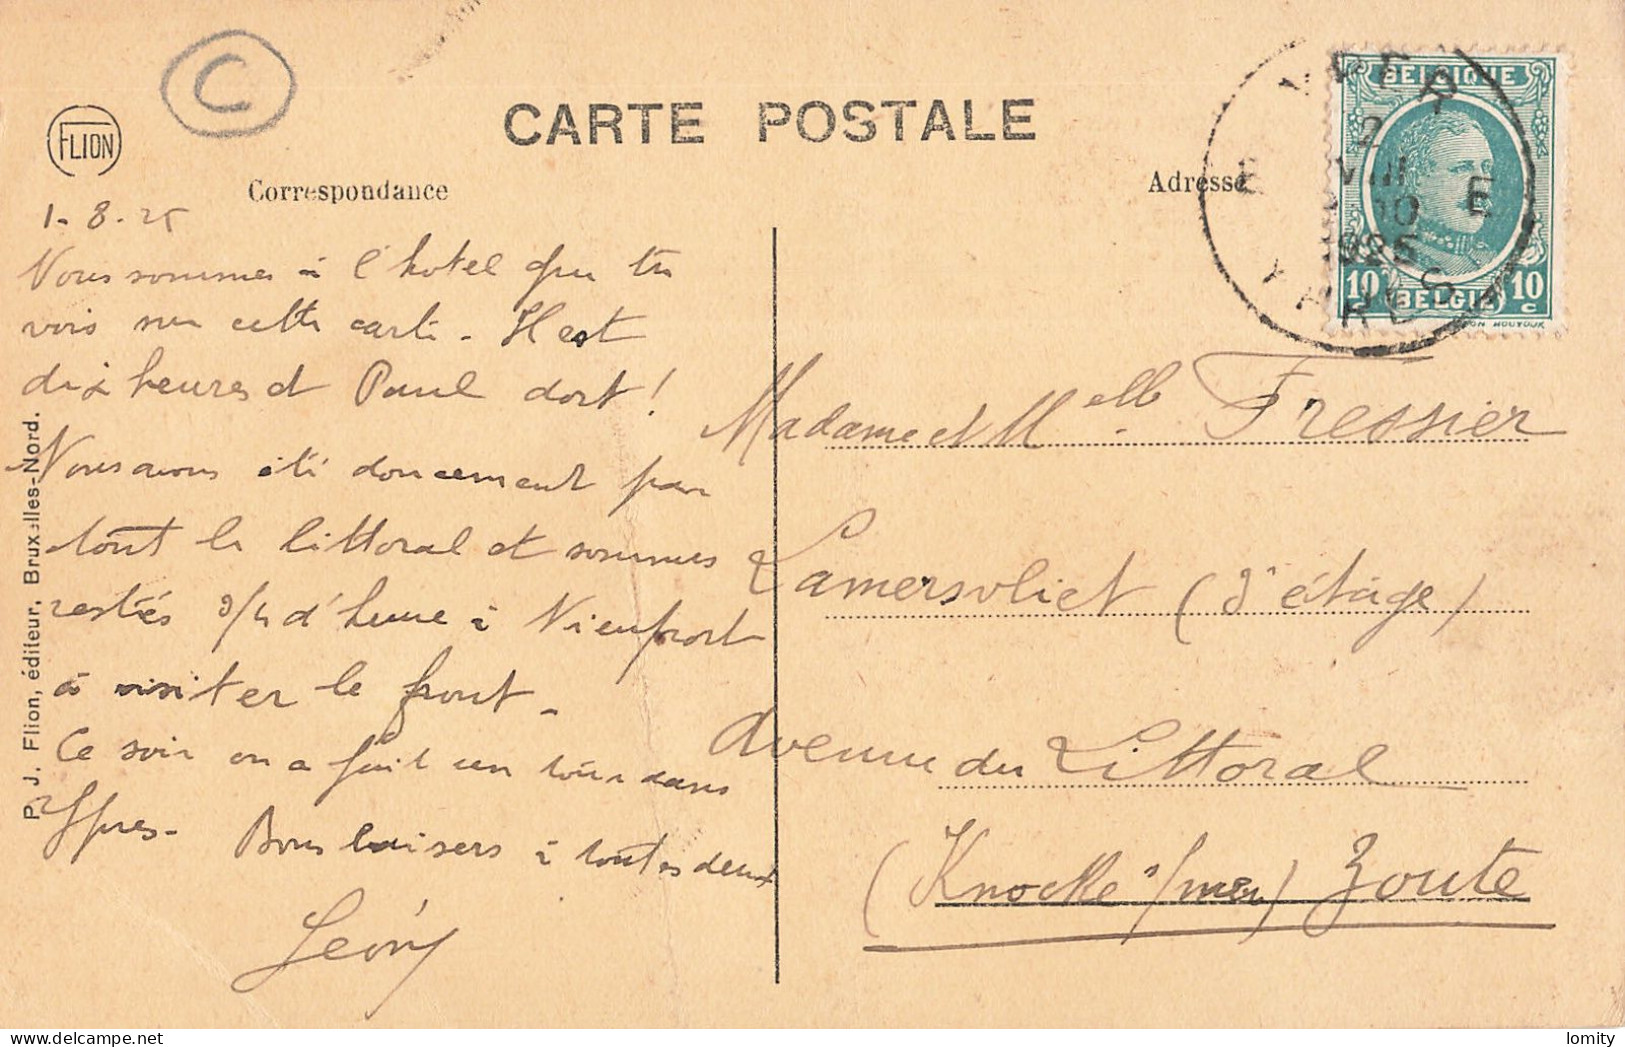 C
FLION
CARTE POSTALE
Correspondance
Adresse
BELGIQUE
10 BELGIË 10
c c
YPER
E E
2
VIII
1925
YPRES
1-8-25
Nous sommes à l'hotel que tu
vois sur cette carte - Il est
dix heures et Paul dort !
Nous avons été doucement par
tout le littoral et sommes
restés 3/4 d'heure à Nieuport
à visiter le front -
Ce soir on a fait un tour dans
Ypres - Bons baisers à toutes deux
P. J. Flion, éditeur, Bruxelles-Nord.
Madame et Melle Fressier
Lamersvliet (3e étage)
Avenue du Littoral
(Knocke s/mer) Zoute
lomity